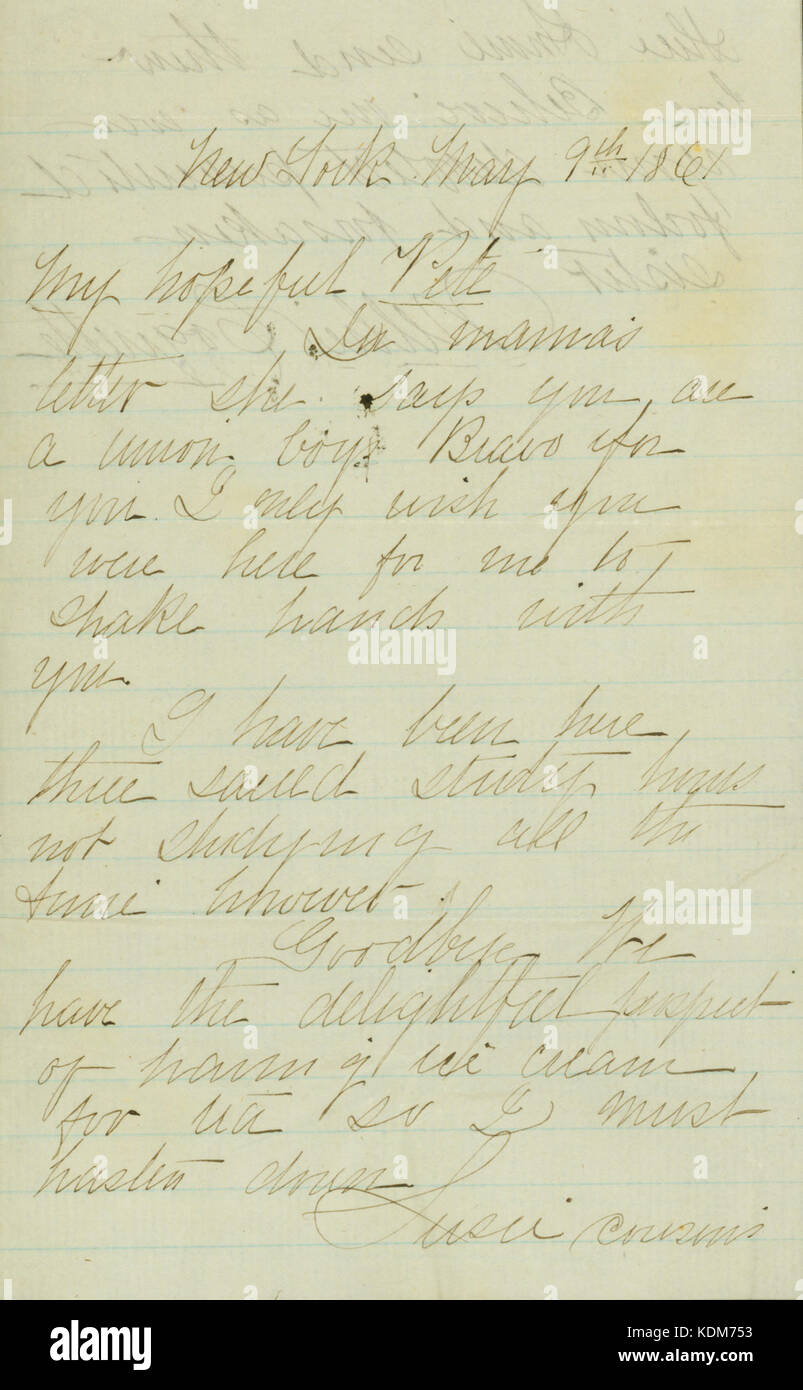 New York May 9th 1861
My hopeful Pete
In mama's
letter she says you are
a union boy. Bravo for
you. I only wish you
were here for me to
shake hands with
you.
I have been here
three sacred study hours
not studying all the
time however.
Goodbye We
have the delightful prospect
of having ice cream
for tea so I must
hasten down
Susie cousins
alamy
alamy stock photo
KDM753
www.alamy.com